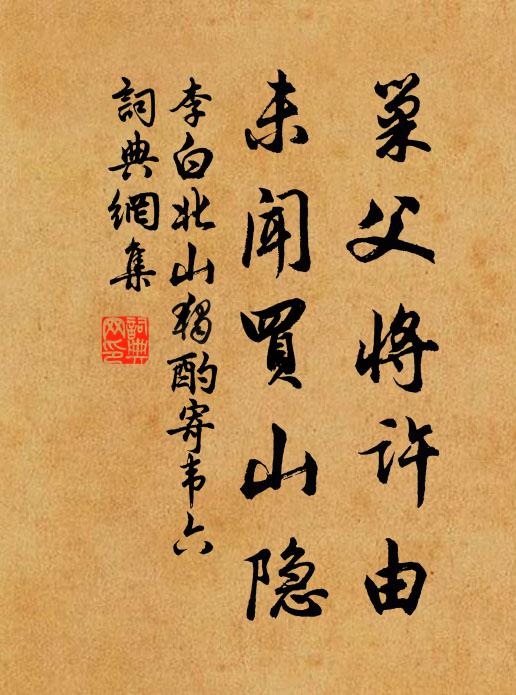 巢父将许由
未闻買山隐
李白北山獨酌寄韦六
詞典網集
詞典網印